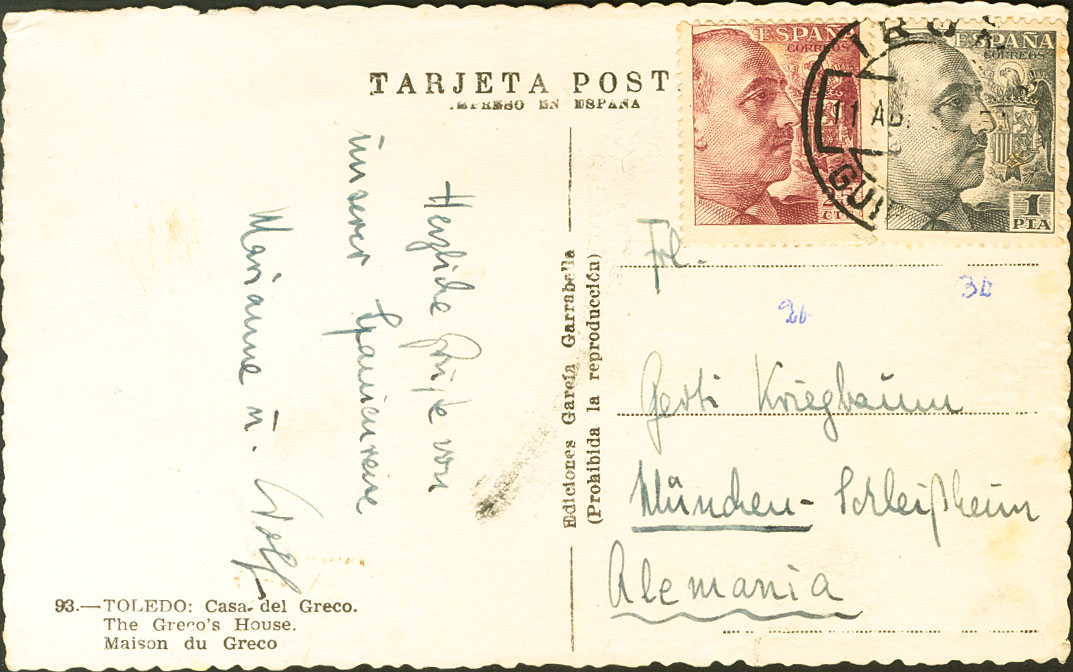 TARJETA POST
IMPRESO EN ESPAÑA
ESPAÑ
CORREOS
25
CT
ESPAÑA
CORREOS
1
PTA
IRUN
11 AB.
GUI
Herzliche Grüße von
unserer Spanienreise
Marianne u. Wolf
Ediciones García Garrabella
(Prohibida la reproducción)
Frl.
26
3D
Gerti Kriegbaum
München-Schleißheim
Alemania
93.—TOLEDO: Casa del Greco.
The Greco's House.
Maison du Greco